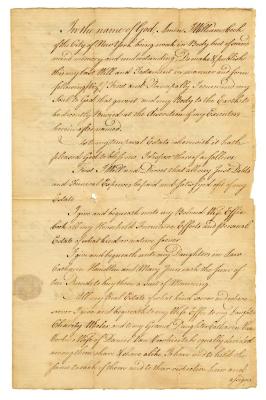 In the name of God, Amen I William Cook
of the City of New York being weak in Body but of sound
mind memory and understanding Do make & publish
this my last Will and Testament in manner and form
following First and Principally I commend my
Soul to God that gave it and my Body to the Earth to
be decently buried at the discretion of my Executors
herein after named
As touching my real Estate wherewith it hath
pleased God to bless me I dispose thereof as follows
First I Will and Direct that all my Just Debts
and Funeral Expences be paid and satisfied out of my
Estate
I give and bequeath unto my Beloved Wife Effie
Cook all my Household Furniture Effects and personal
Estate of what kind or nature soever
I give and bequeath unto my Daughters in Law
Catharine Hamilton and Mary Jones each the sum of
Pounds to buy them a Suit of Mourning
All my Real Estate of what kind soever and wheresoever
I give and bequeath to my Wife Effie to my Daughter
Charity and to my Grand Daughter Catharine
Wife of Daniel Van to be equally divided
among them share & share alike To have and to hold the
same to each of them and to their respective heirs and
assigns